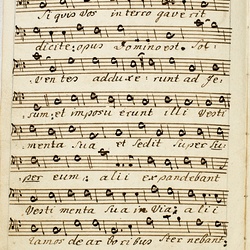 Si quis vos interrogaverit
dicite: opus Domino est. Sol-
ventes adduxe-runt ad Je-
sum: et imposuerunt illi Vesti
menta Sua et Sedit Super Su:
per eum: alii expandebant
Vesti menta Sua in Via: alii
ramos de ar boribus Sternebant